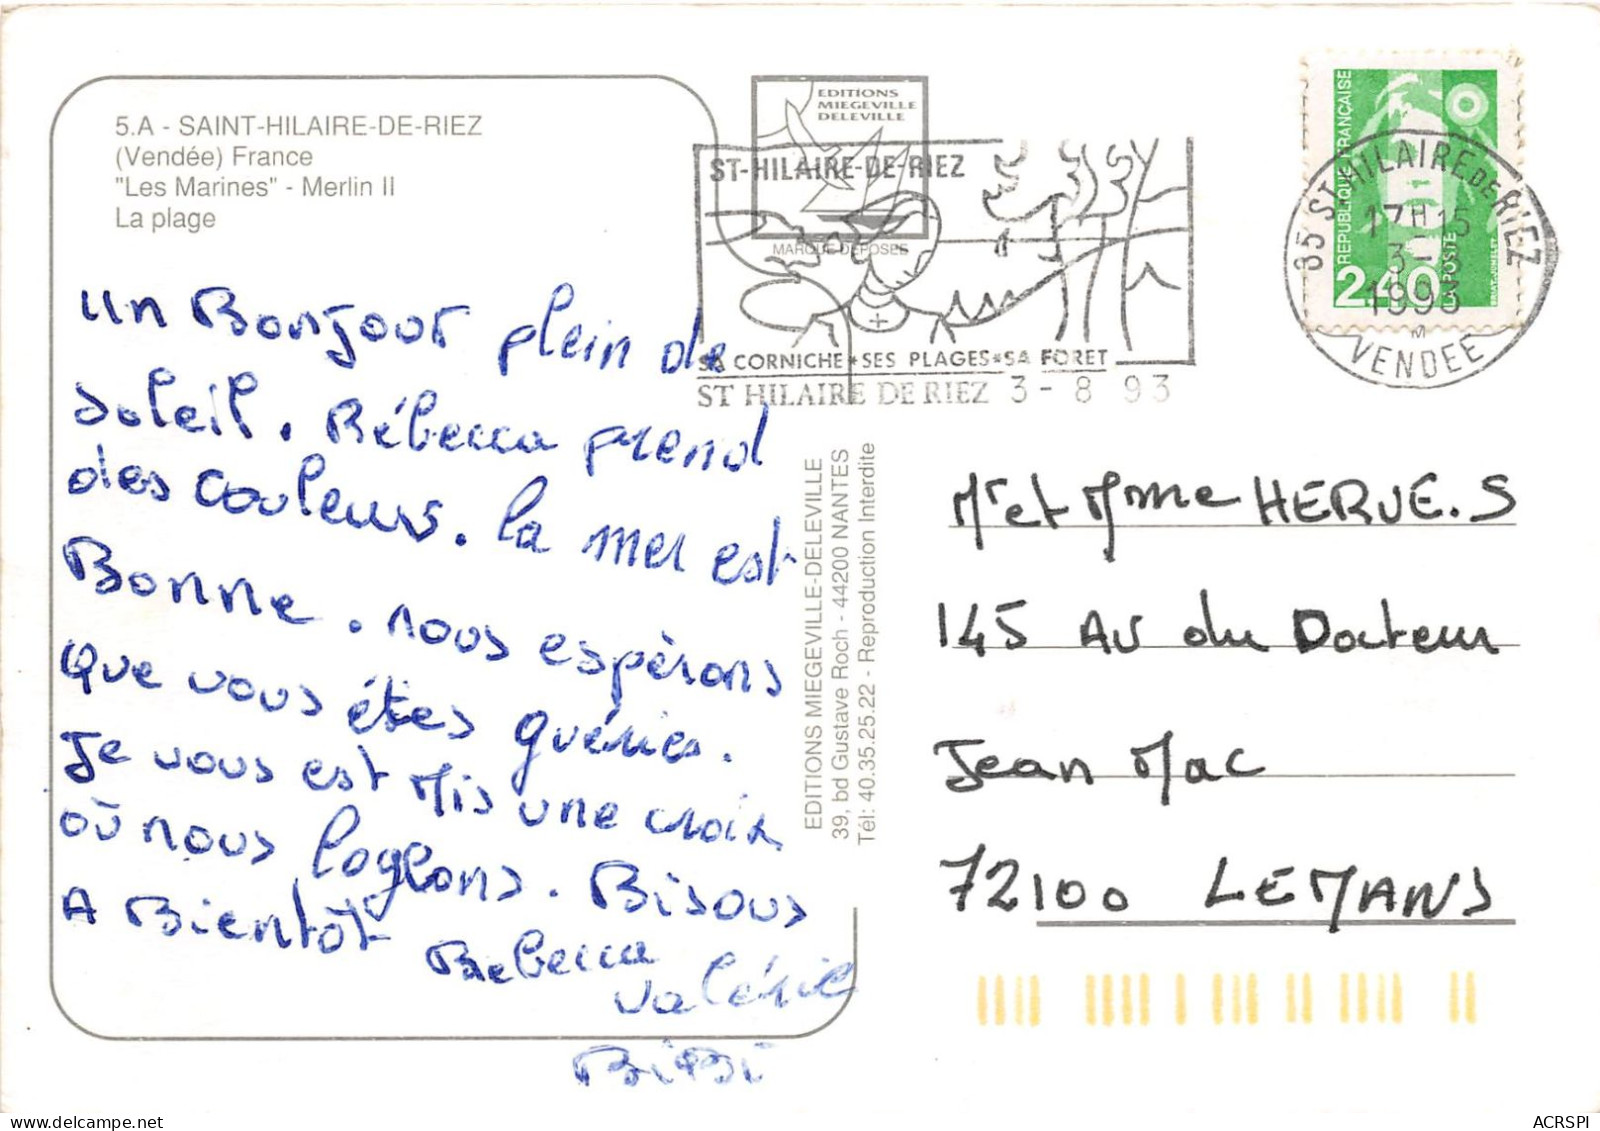 5.A - SAINT-HILAIRE-DE-RIEZ
(Vendée) France
"Les Marines" - Merlin II
La plage
EDITIONS
MIEGEVILLE
DELEVILLE
MARQUE DEPOSEE
ST-HILAIRE-DE-RIEZ
SA CORNICHE*SES PLAGES*SA FORET
ST HILAIRE DE RIEZ 3-8 93
REPUBLIQUE FRANÇAISE
2.40
LA POSTE
85 ST HILAIRE DE RIEZ
17H15
3-8
1993
M
VENDEE
un Bonjour plein de
soleil. Rébecca prend
des couleurs. la mer est
Bonne. nous espèrons
que vous êtes guéries.
Je vous est Mis une croix
où nous loglons. Bisous
A Bientôt Rebecca
valérie
BiBi
EDITIONS MIEGEVILLE-DELEVILLE
39, bd Gustave Roch - 44200 NANTES
Tél: 40.35.25.22 - Reproduction Interdite
Mr et Mme HERVE.S
145 Av du Docteur
Jean Mac
72100 LE MANS
delcampe.net
ACRSPI